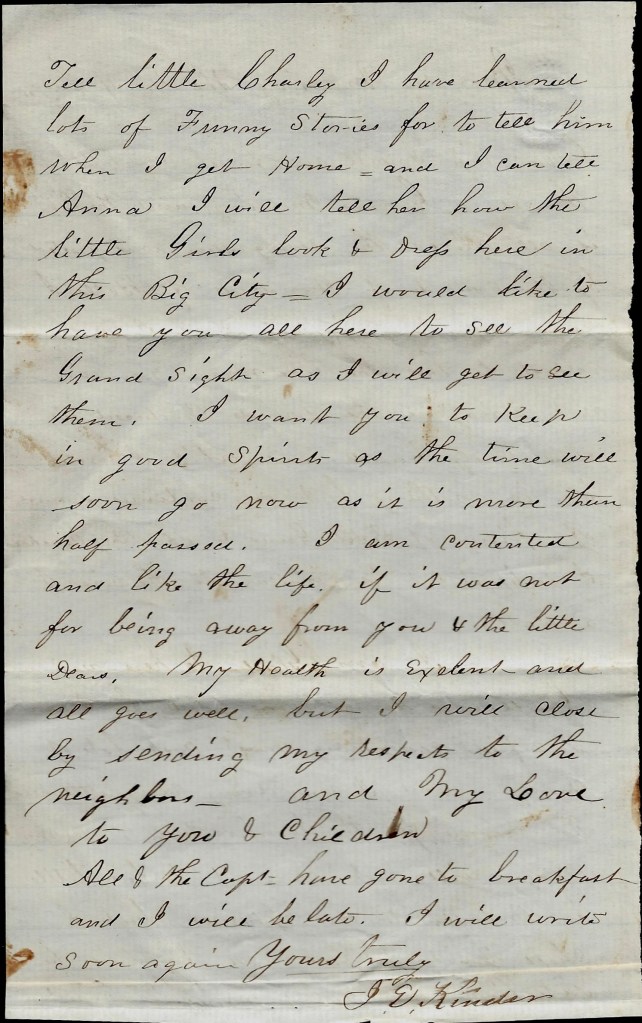 Tell little Charley I have learned
lots of Funny Stories for to tell him
when I get Home = and I can tell
Anna I will tell her how the
little Girls look & Dress here in
this Big City = I would like to
have you all here to see the
Grand Sight as I will get to see
them. I want you to Keep
in good Spirits as the time will
soon go now as it is more then
half passed. I am contented
and like the life. if it was not
for being away from you & the little
Dears. My Health is Exelent and
all goes well. but I will close
by sending my respects to the
neighbors - and My Love
to you & Children
All & the Capt - have gone to breakfast
and I will be late. I will write
soon again Yours truly
J. E. Kinder